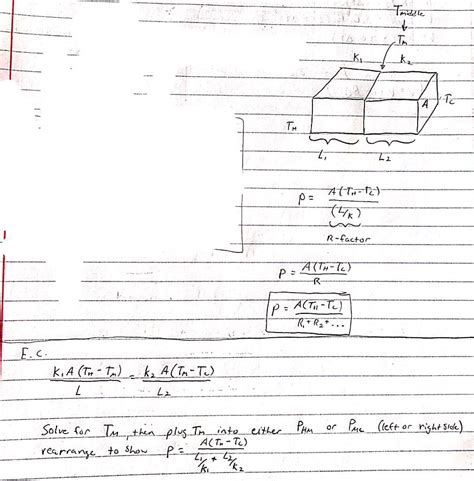 Tmiddle
Tm
K₁ K₂
A
Tc
TH
L₁ L₂
P = A(TH-Tc)
(L/K)
R-factor
P = A(TH-Tc)
R
P = A(TH-Tc)
R₁+R₂+...
E.C.
K₁A(TH-Tm) = K₂A(Tm-Tc)
L L₂
Solve for TM, then plug Tm into either PHM or PMC (left or right side)
rearrange to show P = A(TH-Tc)
L₁/K₁ + L₂/K₂